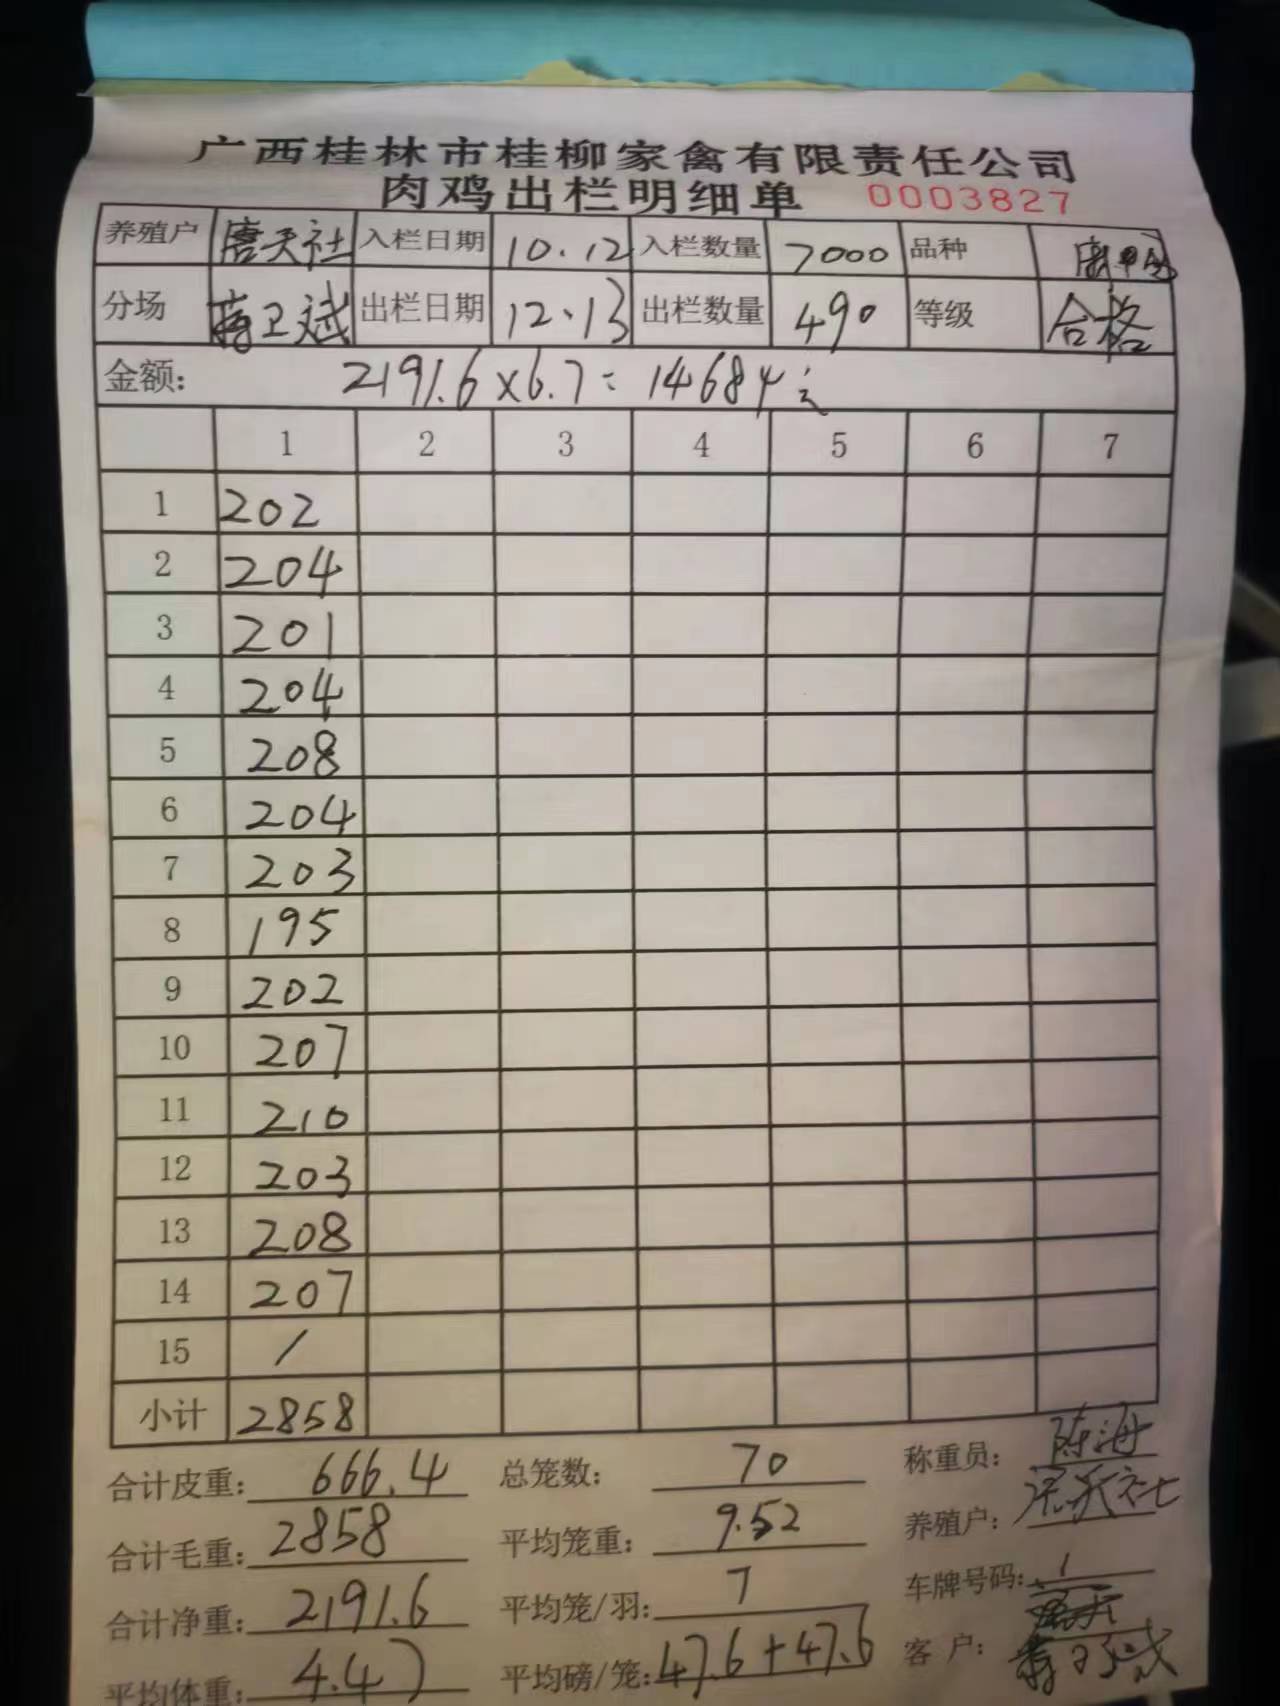 广西桂林市桂柳家禽有限责任公司
肉鸡出栏明细单 0003827
养殖户 唐天社 入栏日期 10.12 入栏数量 7000 品种
分场 蒋卫斌 出栏日期 12、13 出栏数量 490 等级 合格
金额: 2191.6×6.7=14684元
1 2 3 4 5 6 7
1 202
2 204
3 201
4 204
5 208
6 204
7 203
8 195
9 202
10 207
11 210
12 203
13 208
14 207
15 /
小计 2858
合计皮重: 666.4 总笼数: 70 称重员: 陈海
合计毛重: 2858 平均笼重: 9.52 养殖户:
合计净重: 2191.6 平均笼/羽: 7 车牌号码:
平均体重: 4.47 平均磅/笼: 47.6+47.6 客户: